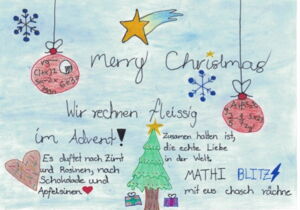 Merry Christmas
Wir rechnen fleissig
im Advent!
Es duftet nach Zimt
und Rosinen, nach
Schokolade und
Apfelsinen
zusamen halten ist,
die echte Liebe
in der Welt.
MATHI BLITZ
mit eus chasch rächne